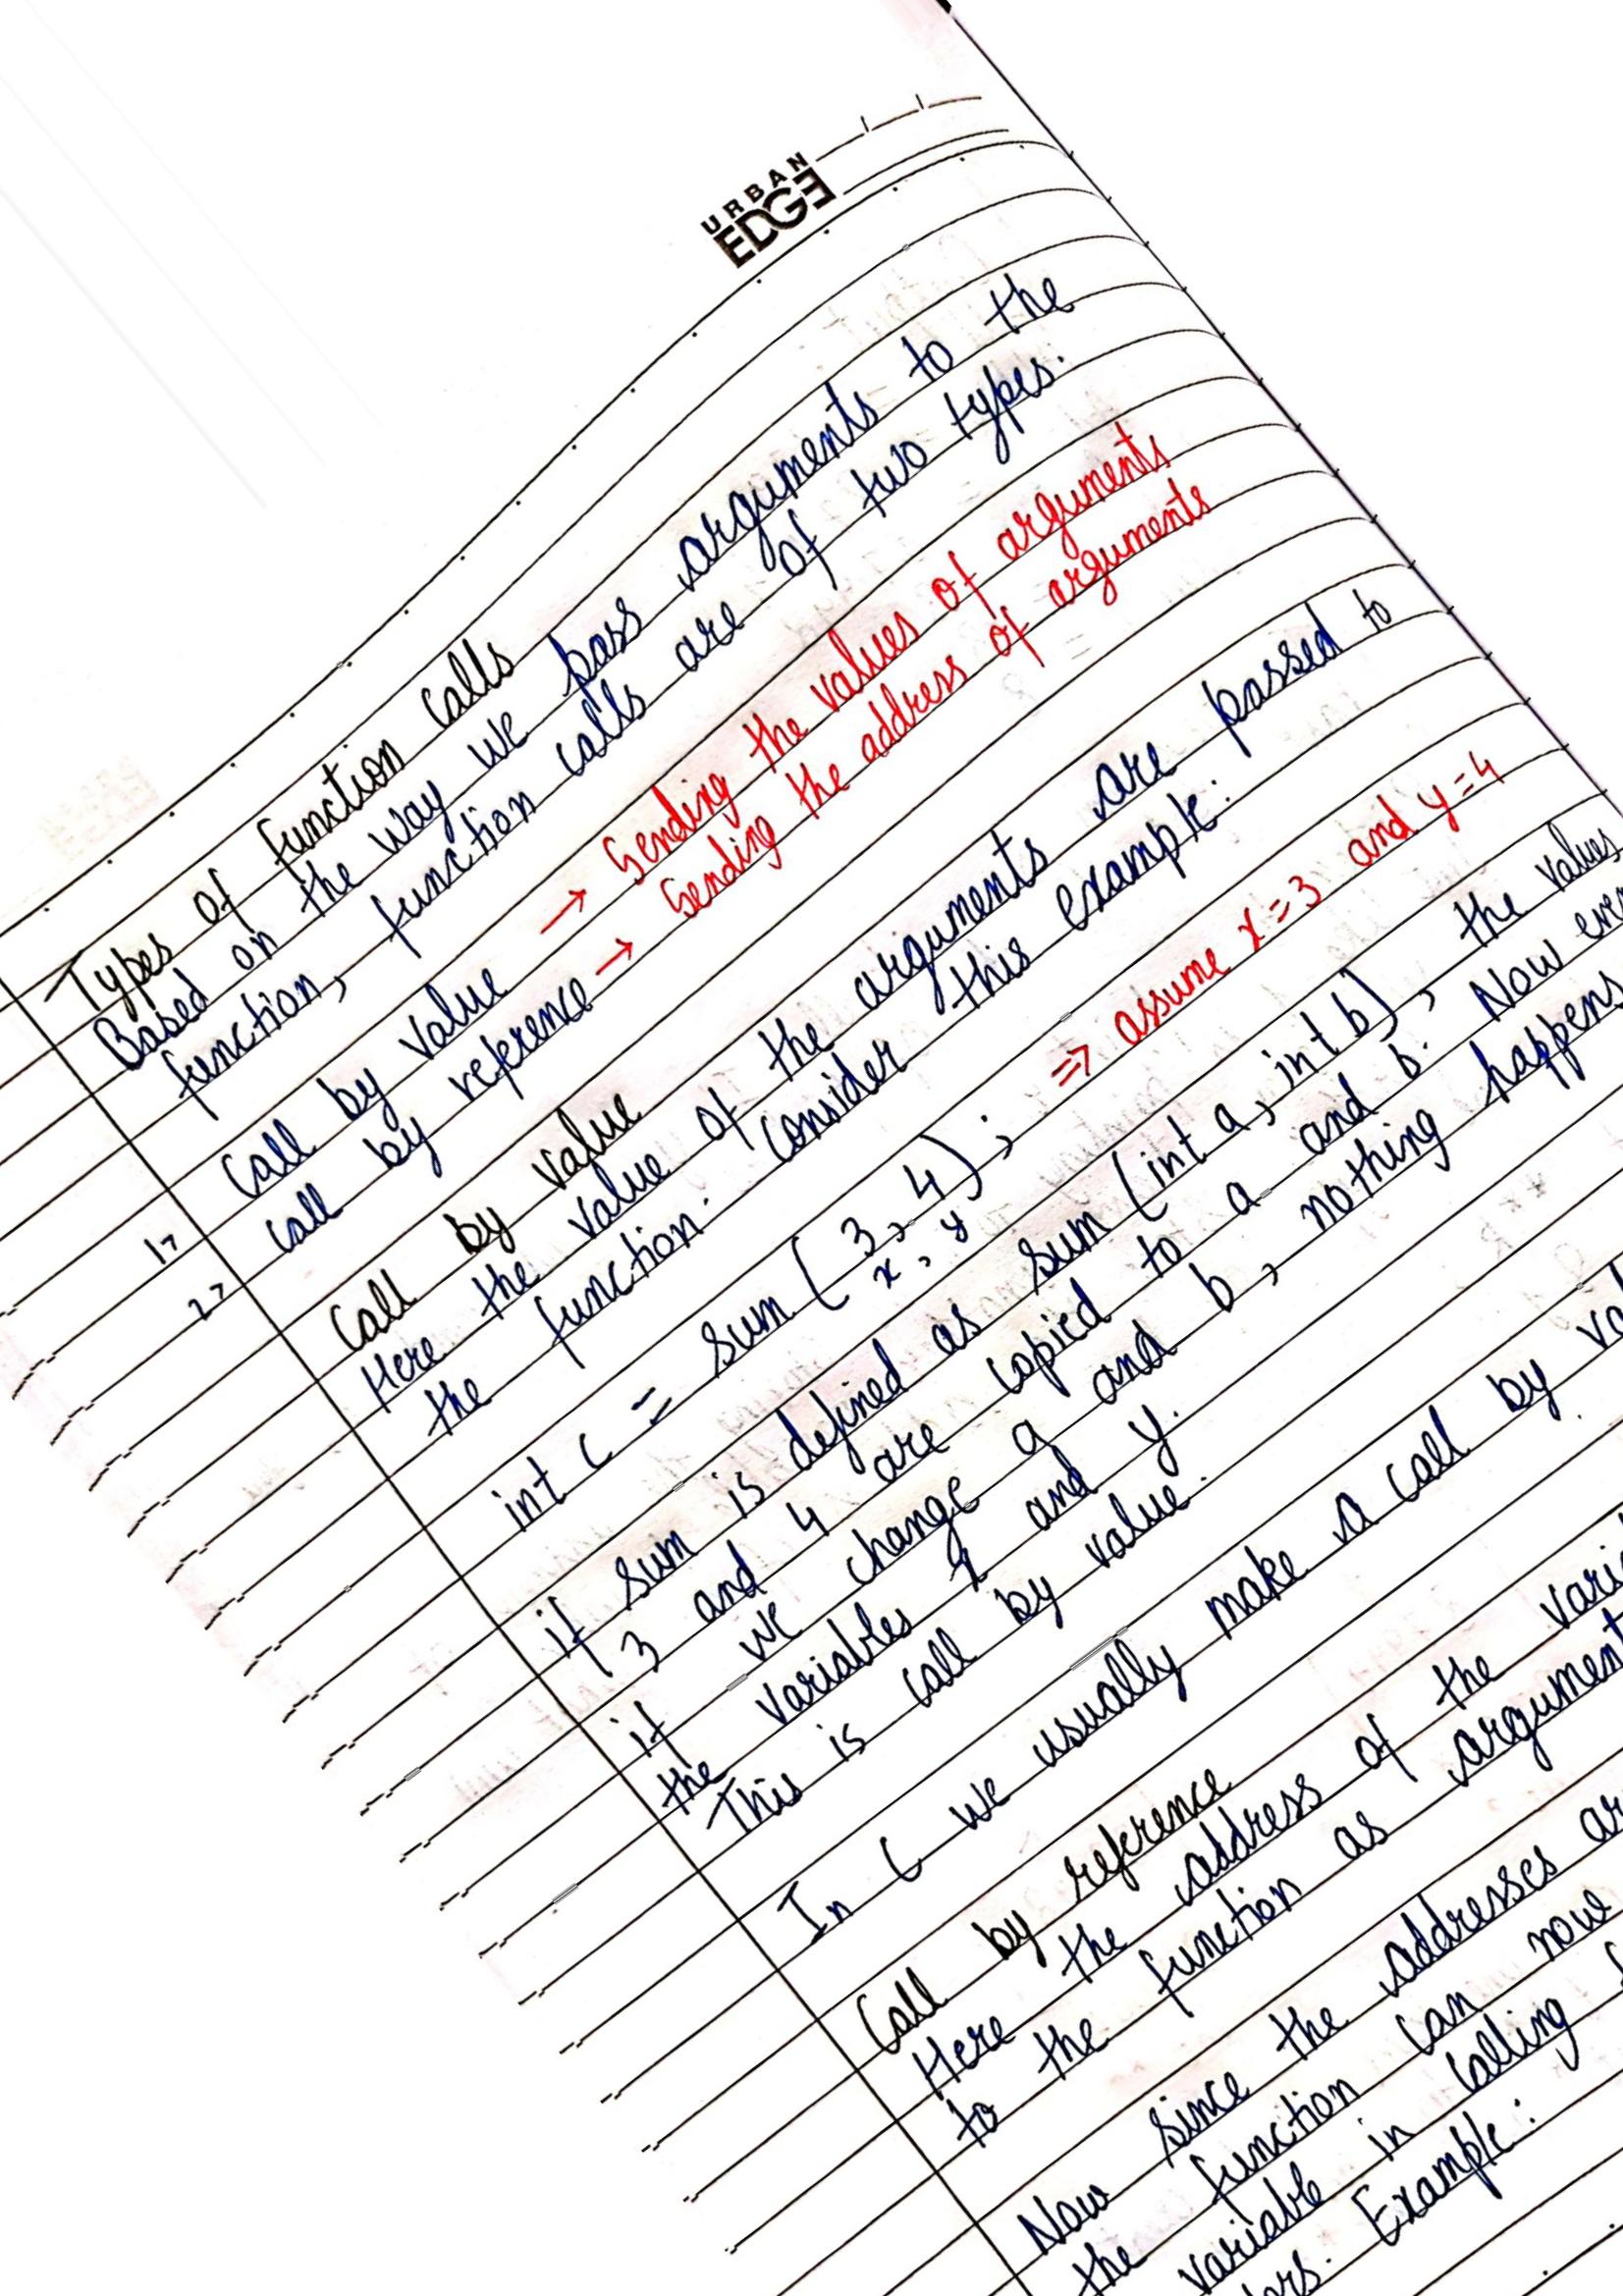 URBAN
EDGE
Types of function calls
Based on the way we pass arguments to the
function, function calls are of two types.
1> Call by value → Sending the values of arguments
2> call by reference → Sending the address of arguments
Call by value
Here the value of the arguments are passed to
the function. Consider this example:
int c = sum (3, 4); => assume x=3 and y=4
x, y
if sum is defined as sum (int a, int b), the values
3 and 4 are copied to a and b. Now
if we change a and b, nothing happens
the variables x and y.
This is call by value.
In C we usually make a call by
Call by reference
Here the address of the
to the function as
Now since the addresses
the function can now
variable in calling
Example: